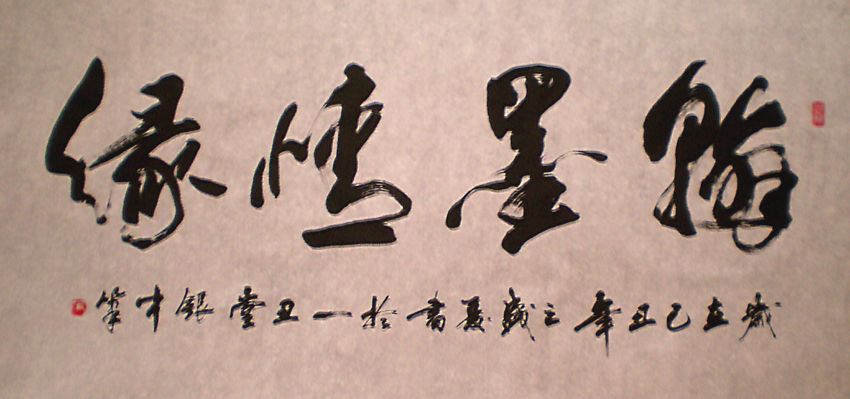 翰墨情缘
岁在己丑年之盛夏书于一丑堂银中笔